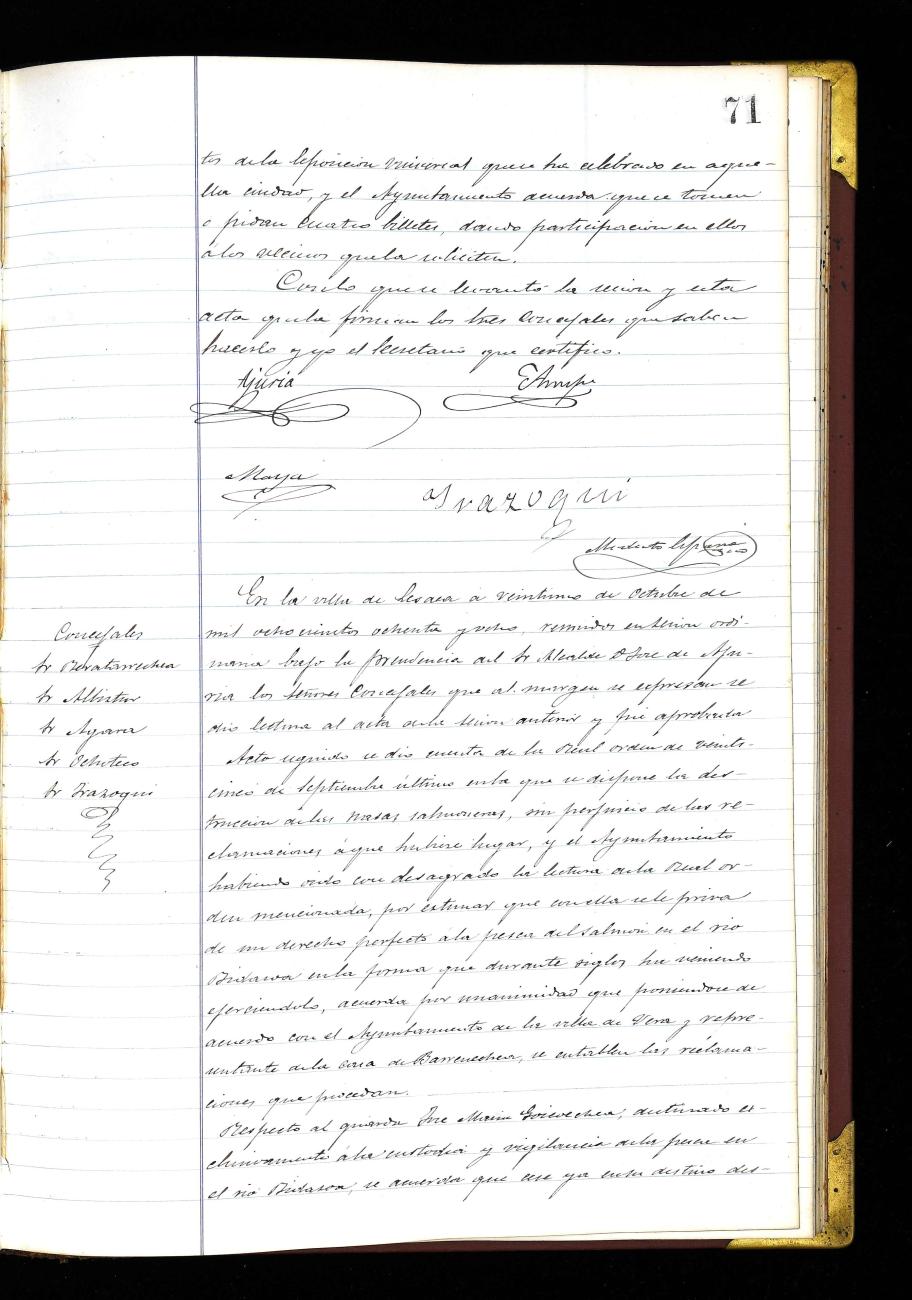 71
tos de la Esposicion universal que se ha celebrado en aque-
lla ciudad, y el Ayuntamiento acuerda que se tomen
o pidan cuatro billetes, dando participacion en ellos
á los vecinos que la soliciten.
Con lo que se levantó la sesion y esta
acta que la firman los tres Concejales que saben
hacerlo y yo el Secretario que certifico.
Ajuria
Maya
Irazoqui
Modesto
En la villa de Lesaca á veintiuno de Octubre de
mil ochocientos ochenta y ocho, reunidos en sesion ordi-
naria bajo la presidencia del Sr Alcalde D José de Aju-
ria los Señores Concejales que al margen se espresan se
dió lectura al acta de la sesion anterior y fué aprobada
Concejales
Sr Beratarrechea
Sr Albistur
Sr
Sr Ochoteco
Sr Irazoqui
Acto seguido se dió cuenta de la Real orden de veinti-
cinco de Septiembre último en la que se dispone la des-
truccion de las nasas salmoneras, sin perjuicio de las re-
clamaciones á que hubiere lugar, y el Ayuntamiento
habiendo oido con desagrado la lectura de la Real or-
den mencionada, por estimar que con ella se le priva
de un derecho perfecto á la pesca del salmon en el rio
Bidasoa en la forma que durante siglos ha veniendo
ejerciendolo, acuerda por unanimidad que poniendose de
acuerdo con el Ayuntamiento de la villa de Vera y repre-
sentante de la casa de Barrenechea, se entablen las reclama-
ciones que procedan.
Respecto al guarda José Maria Goicoechea, destinado es-
clusivamente á la custodia y vigilancia de la pesca en
el rio Bidasoa, se acuerda que cese ya en su destino des-